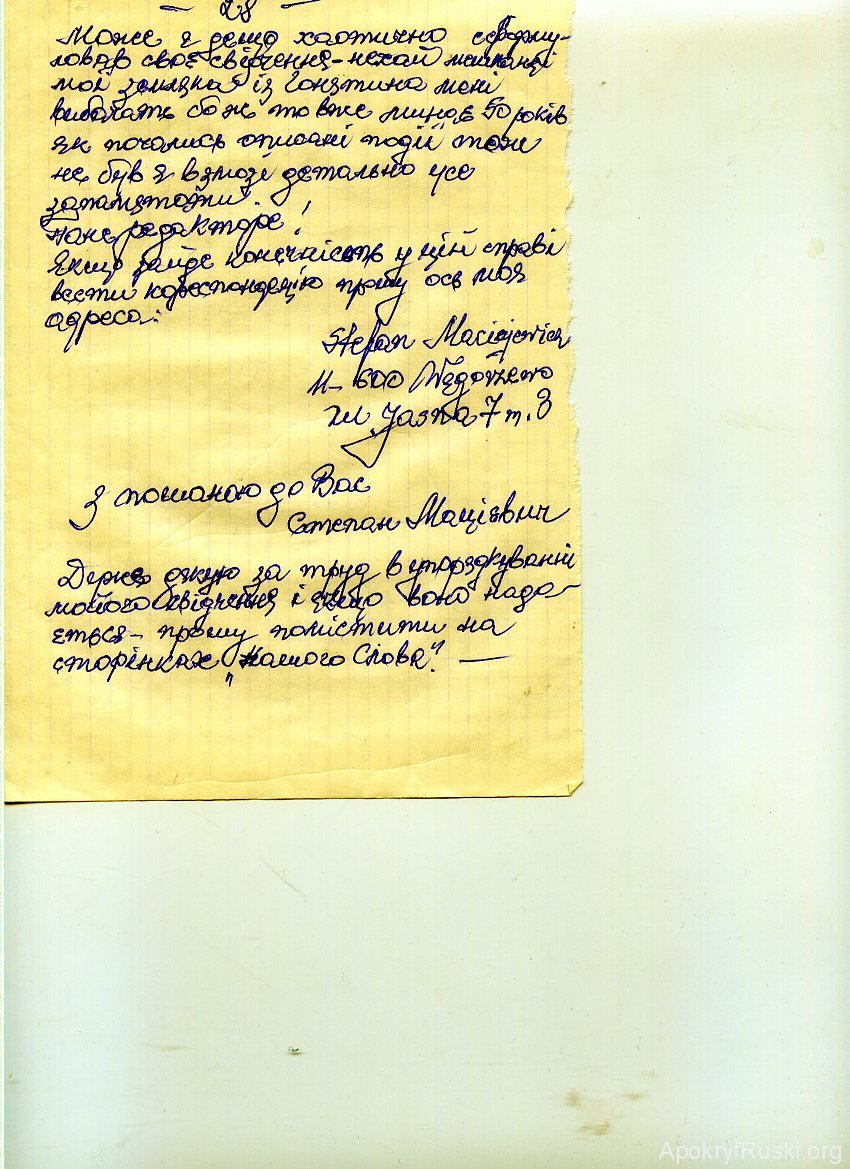 — 28 —
Може я дещо хаотично сформу-
ловав своє свідчення – нехай мешканці
мої земляки із Гонятина мені
вибачать бо ж то вже минає 50 років
як почались описані події тож
не був я взмозі детально усе
запамятати.
Пане редакторе!
Якщо зайде конечність у цій справі
вести кореспонденцію прошу ось моя
адреса:
Stefan Maciejewicz
11-600 Węgorzewo
ul. Jasna 7 m. 3
З пошаною до Вас
Степан Мацієвич
Дуже дякую за труд в упорядкуванні
мойого свідчення і якщо воно нада-
ється – прошу помістити на
сторінках „Нашого Слова". —
ApokryfRuski.org